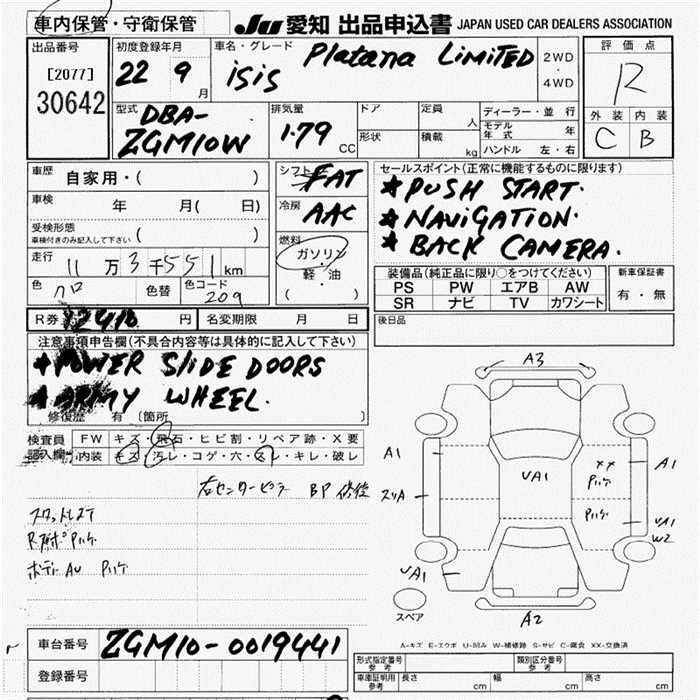 車内保管・守衛保管
JU 愛知 出品申込書 JAPAN USED CAR DEALERS ASSOCIATION
出品番号
[2077]
30642
初度登録年月
22 9 月
車名・グレード
isis Platana LiMiTED
2WD
・
4WD
評価点
R
外装 内装
C B
型式
DBA-
ZGM10W
排気量
1.79 CC
ドア
形状
定員 人
積載 kg
ディーラー・並行
モデル年式 年
ハンドル 左・右
車歴 自家用・( )
車検 年 月( 日)
受検形態
車検付きのみ記入して下さい ( )
走行 11万3千551km
色 クロ 色替 色コード 209
シフト FAT
冷房 AAC
燃料
ガソリン
・
軽・油
( )
セールスポイント(正常に機能するものに限ります)
★ PUSH START.
★ NAViGATiON.
★ BACK CAMERA.
装備品(純正品に限り○をつけてください)
PS PW エアB AW
SR ナビ TV カワシート
新車保証書
有・無
R券 12410 円 名変期限 月 日
後日品
注意事項申告欄(不具合内容等は具体的に記入して下さい)
★ POWER SliDE DOORS
★ ARMY WHEEL.
修復歴 有 〔箇所 〕
検査員記入欄
FW キズ・飛石・ヒビ割・リペア跡・X要
内装 キズ・汚レ・コゲ・穴・スレ・キレ・破レ
右センターピラー BP 修復
A3
A1
スリA
UA1
UA1
XX
Pハケ
Pハケ
A1
UA1
W2
A2
スペア
A-キズ E-エクボ U-凹み W-補修跡 S-サビ C-腐食 XX-交換済
車台番号 ZGM10-0019441
登録番号
形式指定番号 参考
類別区分番号 参考
車庫証明用 参考 長さ cm 幅 cm 高さ cm